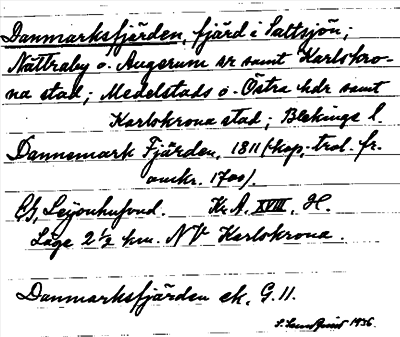 Danmarksfjärden, fjärd i Saltsjön;
Nättraby o. Augerum sr samt Karlskro-
na stad; Medelstads o. Östra hdr samt
Karlskrona stad; Blekinge l.
Dannemark Fjärden, 1811 (kop., trol. fr.
omkr. 1700).
C.G. Leijonhufvud. Kr.A. XVIII. H.
Läge 2½ km. NV Karlskrona.
Danmarksfjärden ek. G.11.
S. Lundquist 1936.